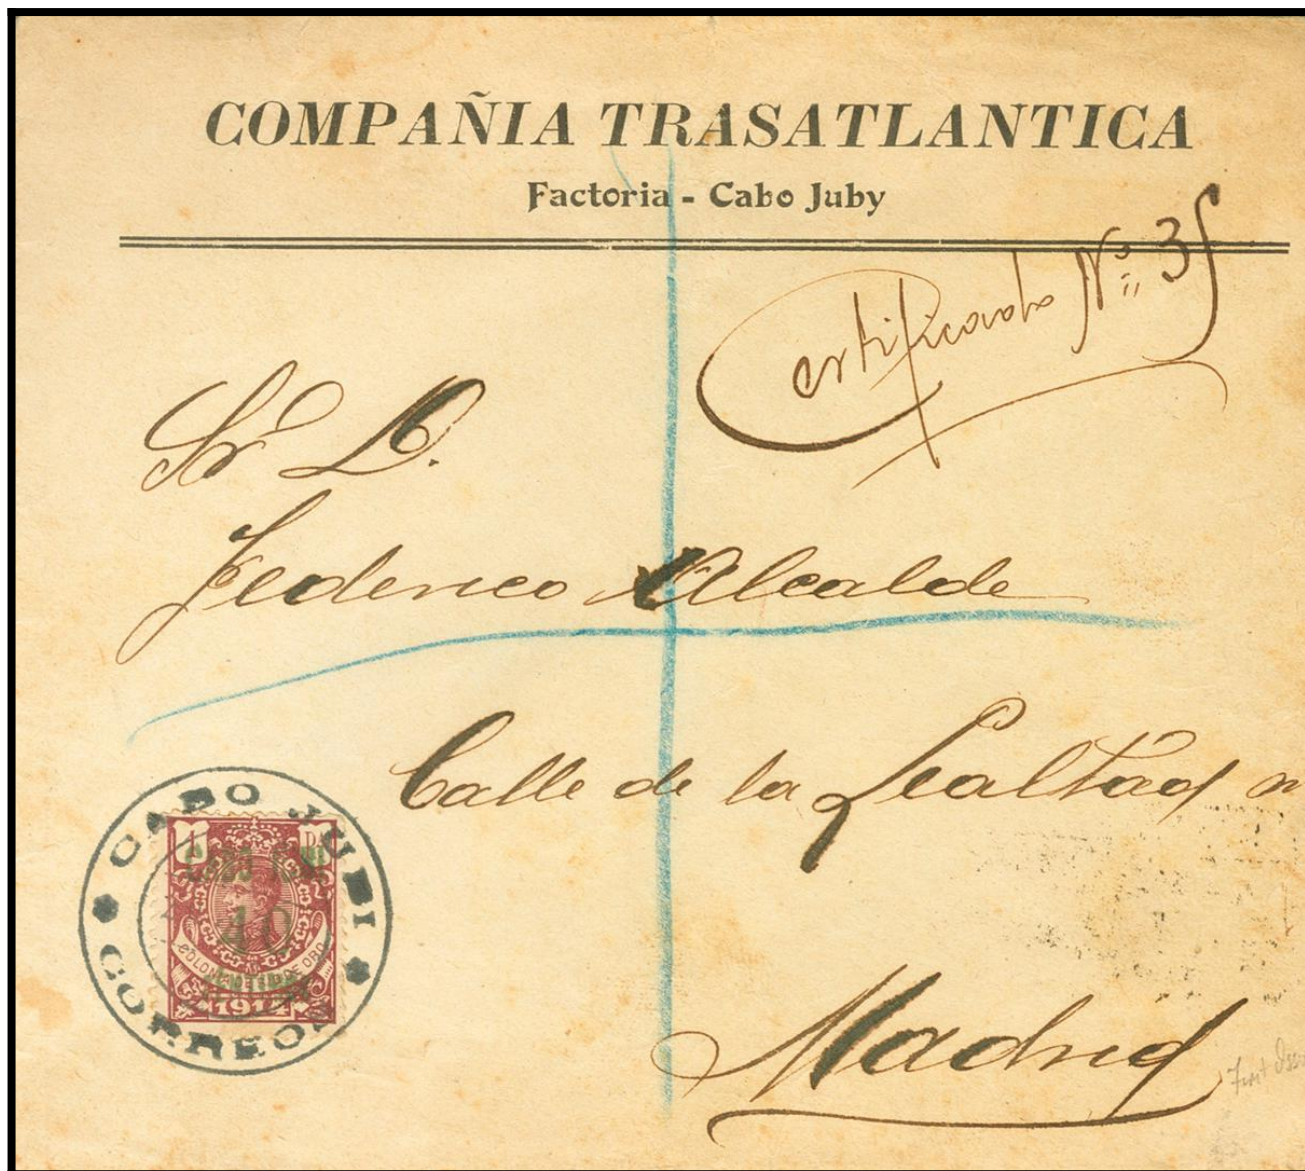 COMPAÑIA TRASATLANTICA
Factoria - Cabo Juby
Certificado Nº 35
Sr D.
Federico Alcalde
Calle de la Lealtad n
Madrid
CABO JUBI
CORREOS
CABO JUBI
40
COLONIA DE RIO DE ORO
1914
First